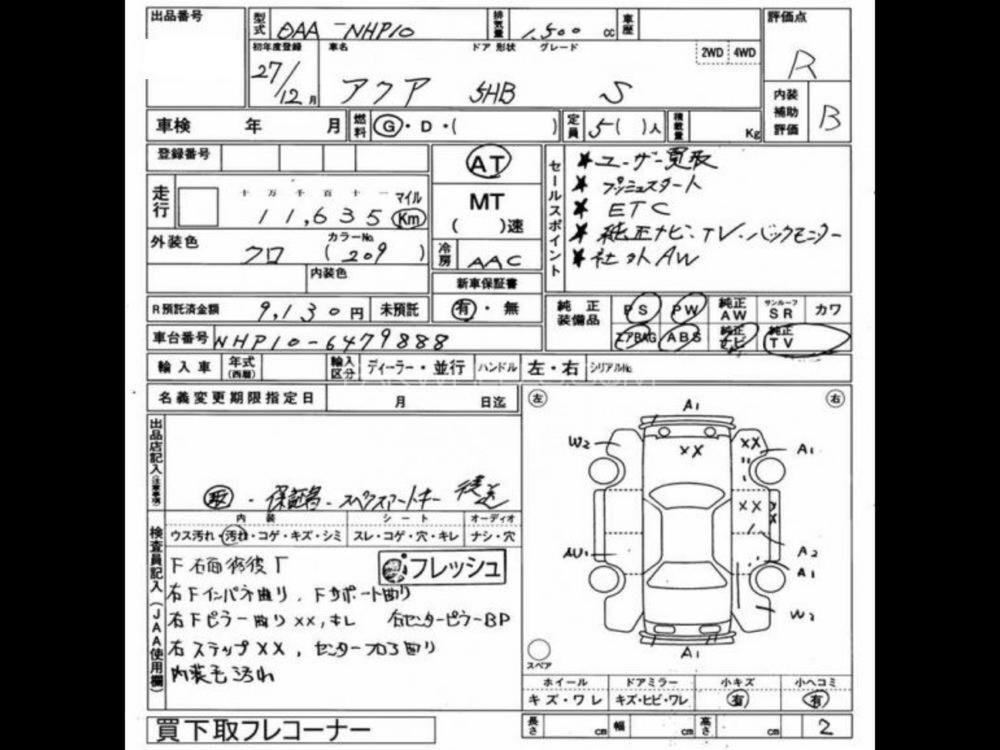 出品番号
型式 DAA-NHP10 排気量 1,500 cc 車歴
評価点 R
初年度登録 27/12月 車名 アクア ドア 形状 5HB グレード S 2WD 4WD
内装補助評価 B
車検 年 月 燃料 G・D・( ) 定員 5( )人 積載量 Kg
登録番号
走行 十万千百十一 11,635 マイル Km
AT
MT
( )速
外装色 クロ カラーNo. (209)
内装色
冷房 AAC
新車保証書
有・無
セールスポイント
★ユーザー買取
★プッシュスタート
★ETC
★純正ナビ・TV・バックモニター
★社外AW
R預託済金額 9,130円 未預託
純正装備品 PS PW 純正AW サンルーフSR カワ
エアBAG ABS 純正ナビ 純正TV
車台番号 NHP10-6479888
輸入車 年式(西暦) 輸入区分 ディーラー・並行 ハンドル 左・右 シリアルNo.
名義変更期限指定日 月 日迄
出品店記入(注意事項)
取・保証書・スペアスマートキー 後送
検査員記入(JAA使用欄)
内装 シート オーディオ
ウス汚れ・汚れ・コゲ・キズ・シミ スレ・コゲ・穴・キレ ナシ・穴
フレッシュ
F右面修復「
右Fインパネ曲り、Fサポート曲り
右Fピラー曲り××,キレ 右センターピラーBP
右ステップ××,センターフロア曲り
内装毛汚れ
左 右
A1
W2 ×× ×× A1
××
A2
A1
W2
A1
スペア
ホイール ドアミラー 小キズ 小ヘコミ
キズ・ワレ キズ・ヒビ・ワレ 有 有
買下取フレコーナー
長さ cm 幅 cm 高さ cm 2